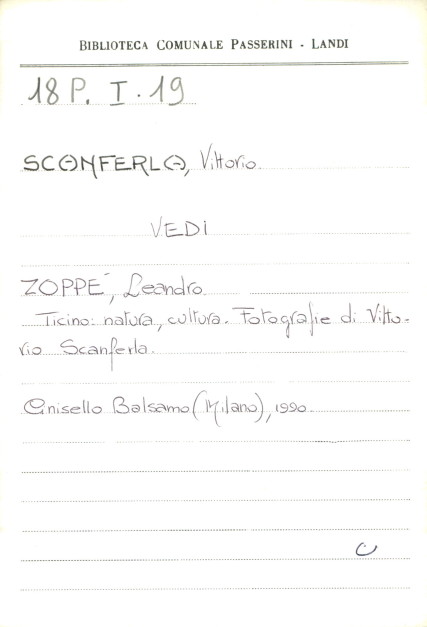 BIBLIOTECA COMUNALE PASSERINI - LANDI
18 P. I. 19
SCANFERLA, Vittorio
VEDI
ZOPPÉ, Leandro
Ticino: natura, cultura. Fotografie di Vitto-
rio Scanferla.
Cinisello Balsamo (Milano), 1990
C